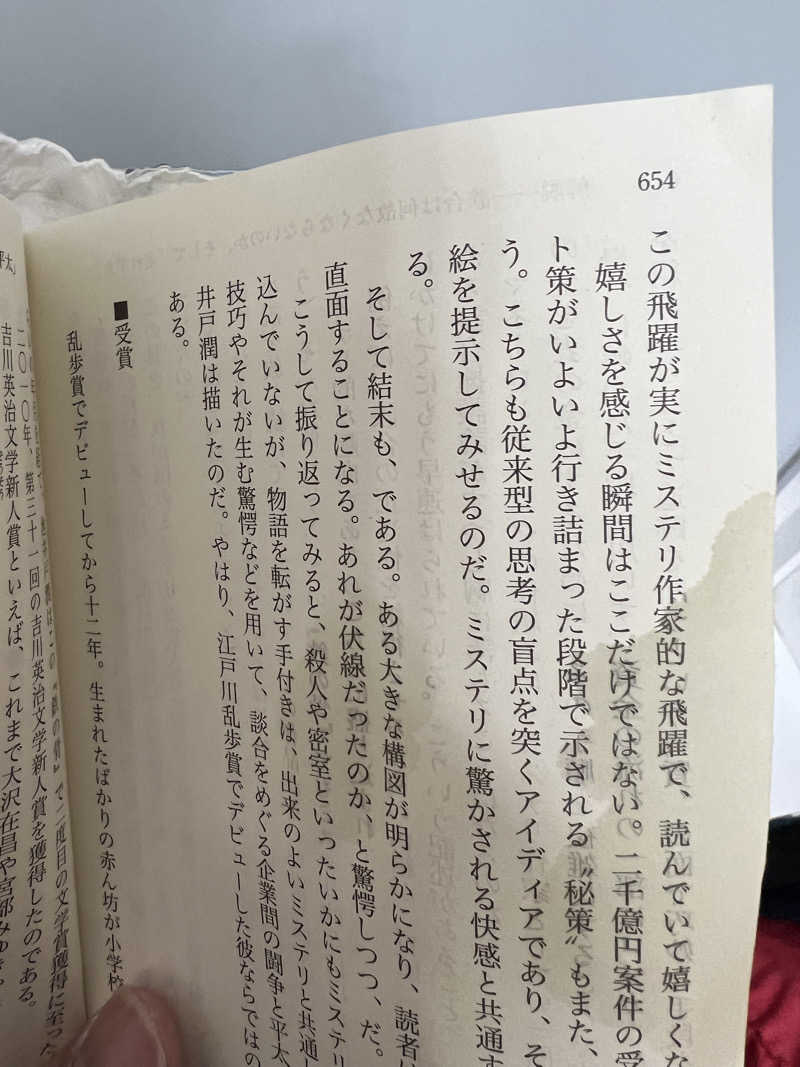 654
この飛躍が実にミステリ作家的な飛躍で、読んでいて嬉しくな
嬉しさを感じる瞬間はここだけではない。二千億円案件の受
ト策がいよいよ行き詰まった段階で示される〝秘策〟もまた、
う。こちらも従来型の思考の盲点を突くアイディアであり、そ
絵を提示してみせるのだ。ミステリに驚かされる快感と共通す
る。
そして結末も、である。ある大きな構図が明らかになり、読者は
直面することになる。あれが伏線だったのか、と驚愕しつつ、だ。
こうして振り返ってみると、殺人や密室といったいかにもミステリ
込んでいないが、物語を転がす手付きは、出来のよいミステリと共通し
技巧やそれが生む驚愕などを用いて、談合をめぐる企業間の闘争と平太
井戸潤は描いたのだ。やはり、江戸川乱歩賞でデビューした彼ならではの
ある。
■受賞
乱歩賞でデビューしてから十二年。生まれたばかりの赤ん坊が小学校
で二度目の文学賞獲得に至った
二〇一〇年、第三十一回の吉川英治文学新人賞を獲得したのである。
吉川英治文学新人賞といえば、これまで大沢在昌や宮部みゆき